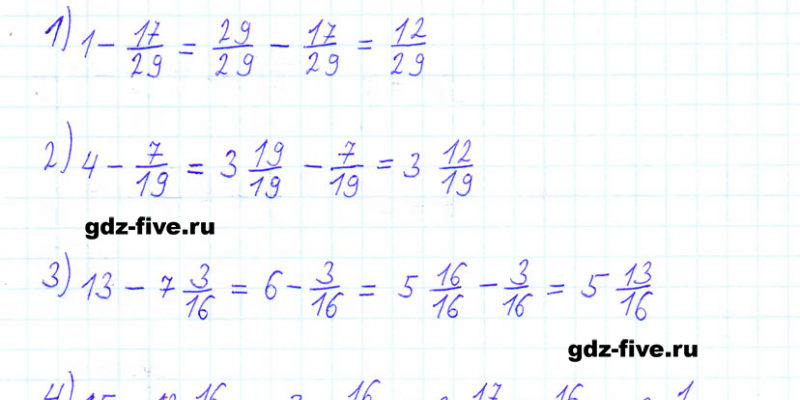 1) 1 - 17/29 = 29/29 - 17/29 = 12/29
2) 4 - 7/19 = 3 19/19 - 7/19 = 3 12/19
gdz-five.ru
3) 13 - 7 3/16 = 6 - 3/16 = 5 16/16 - 3/16 = 5 13/16
gdz-five.ru
4)